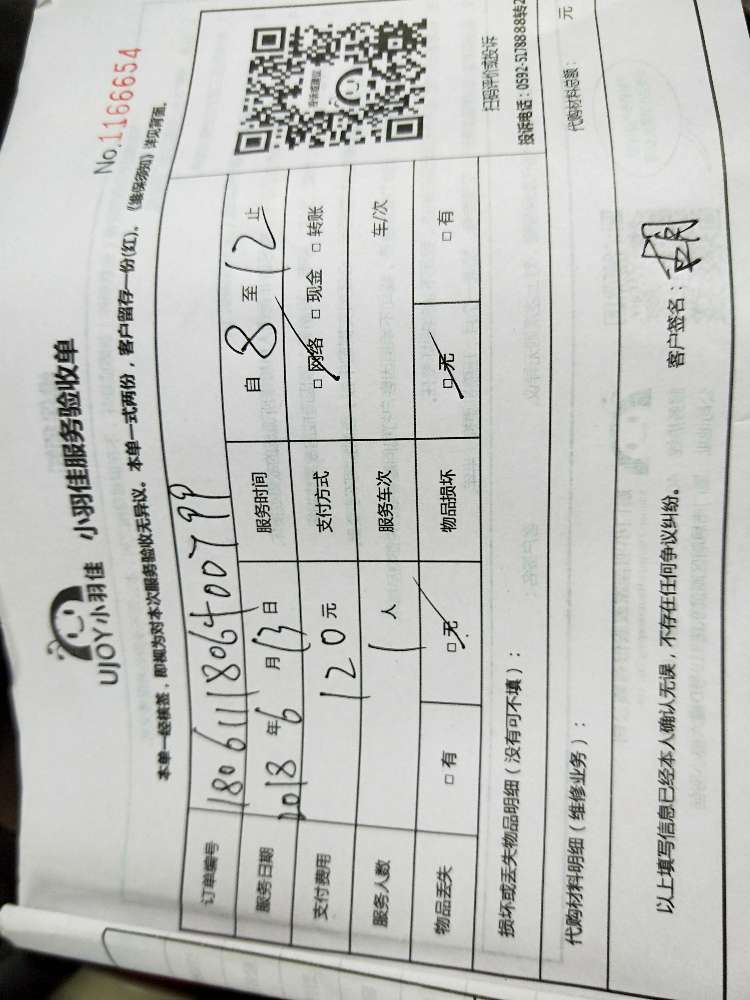 UJOY小羽佳 小羽佳服务验收单
No.1166654
本单一经核签，即视为对本次服务验收无异议。本单一式两份，客户留存一份(红)。《维保须知》详见背面。
订单编号 180611180640079​9
服务日期 2018年6月13日 服务时间 自8至12止
支付费用 120元 支付方式 □网络 □现金 □转账
服务人数 1人 服务车次 车/次
物品丢失 □有 □无 物品损坏 □无 □有
损坏或丢失物品明细（没有可不填）：
扫码评价或投诉
投诉电话：0592-5178888转2
代购材料明细（维修业务）：
代购材料总额： 元
以上填写信息已经本人确认无误，不存在任何争议纠纷。
客户签名：